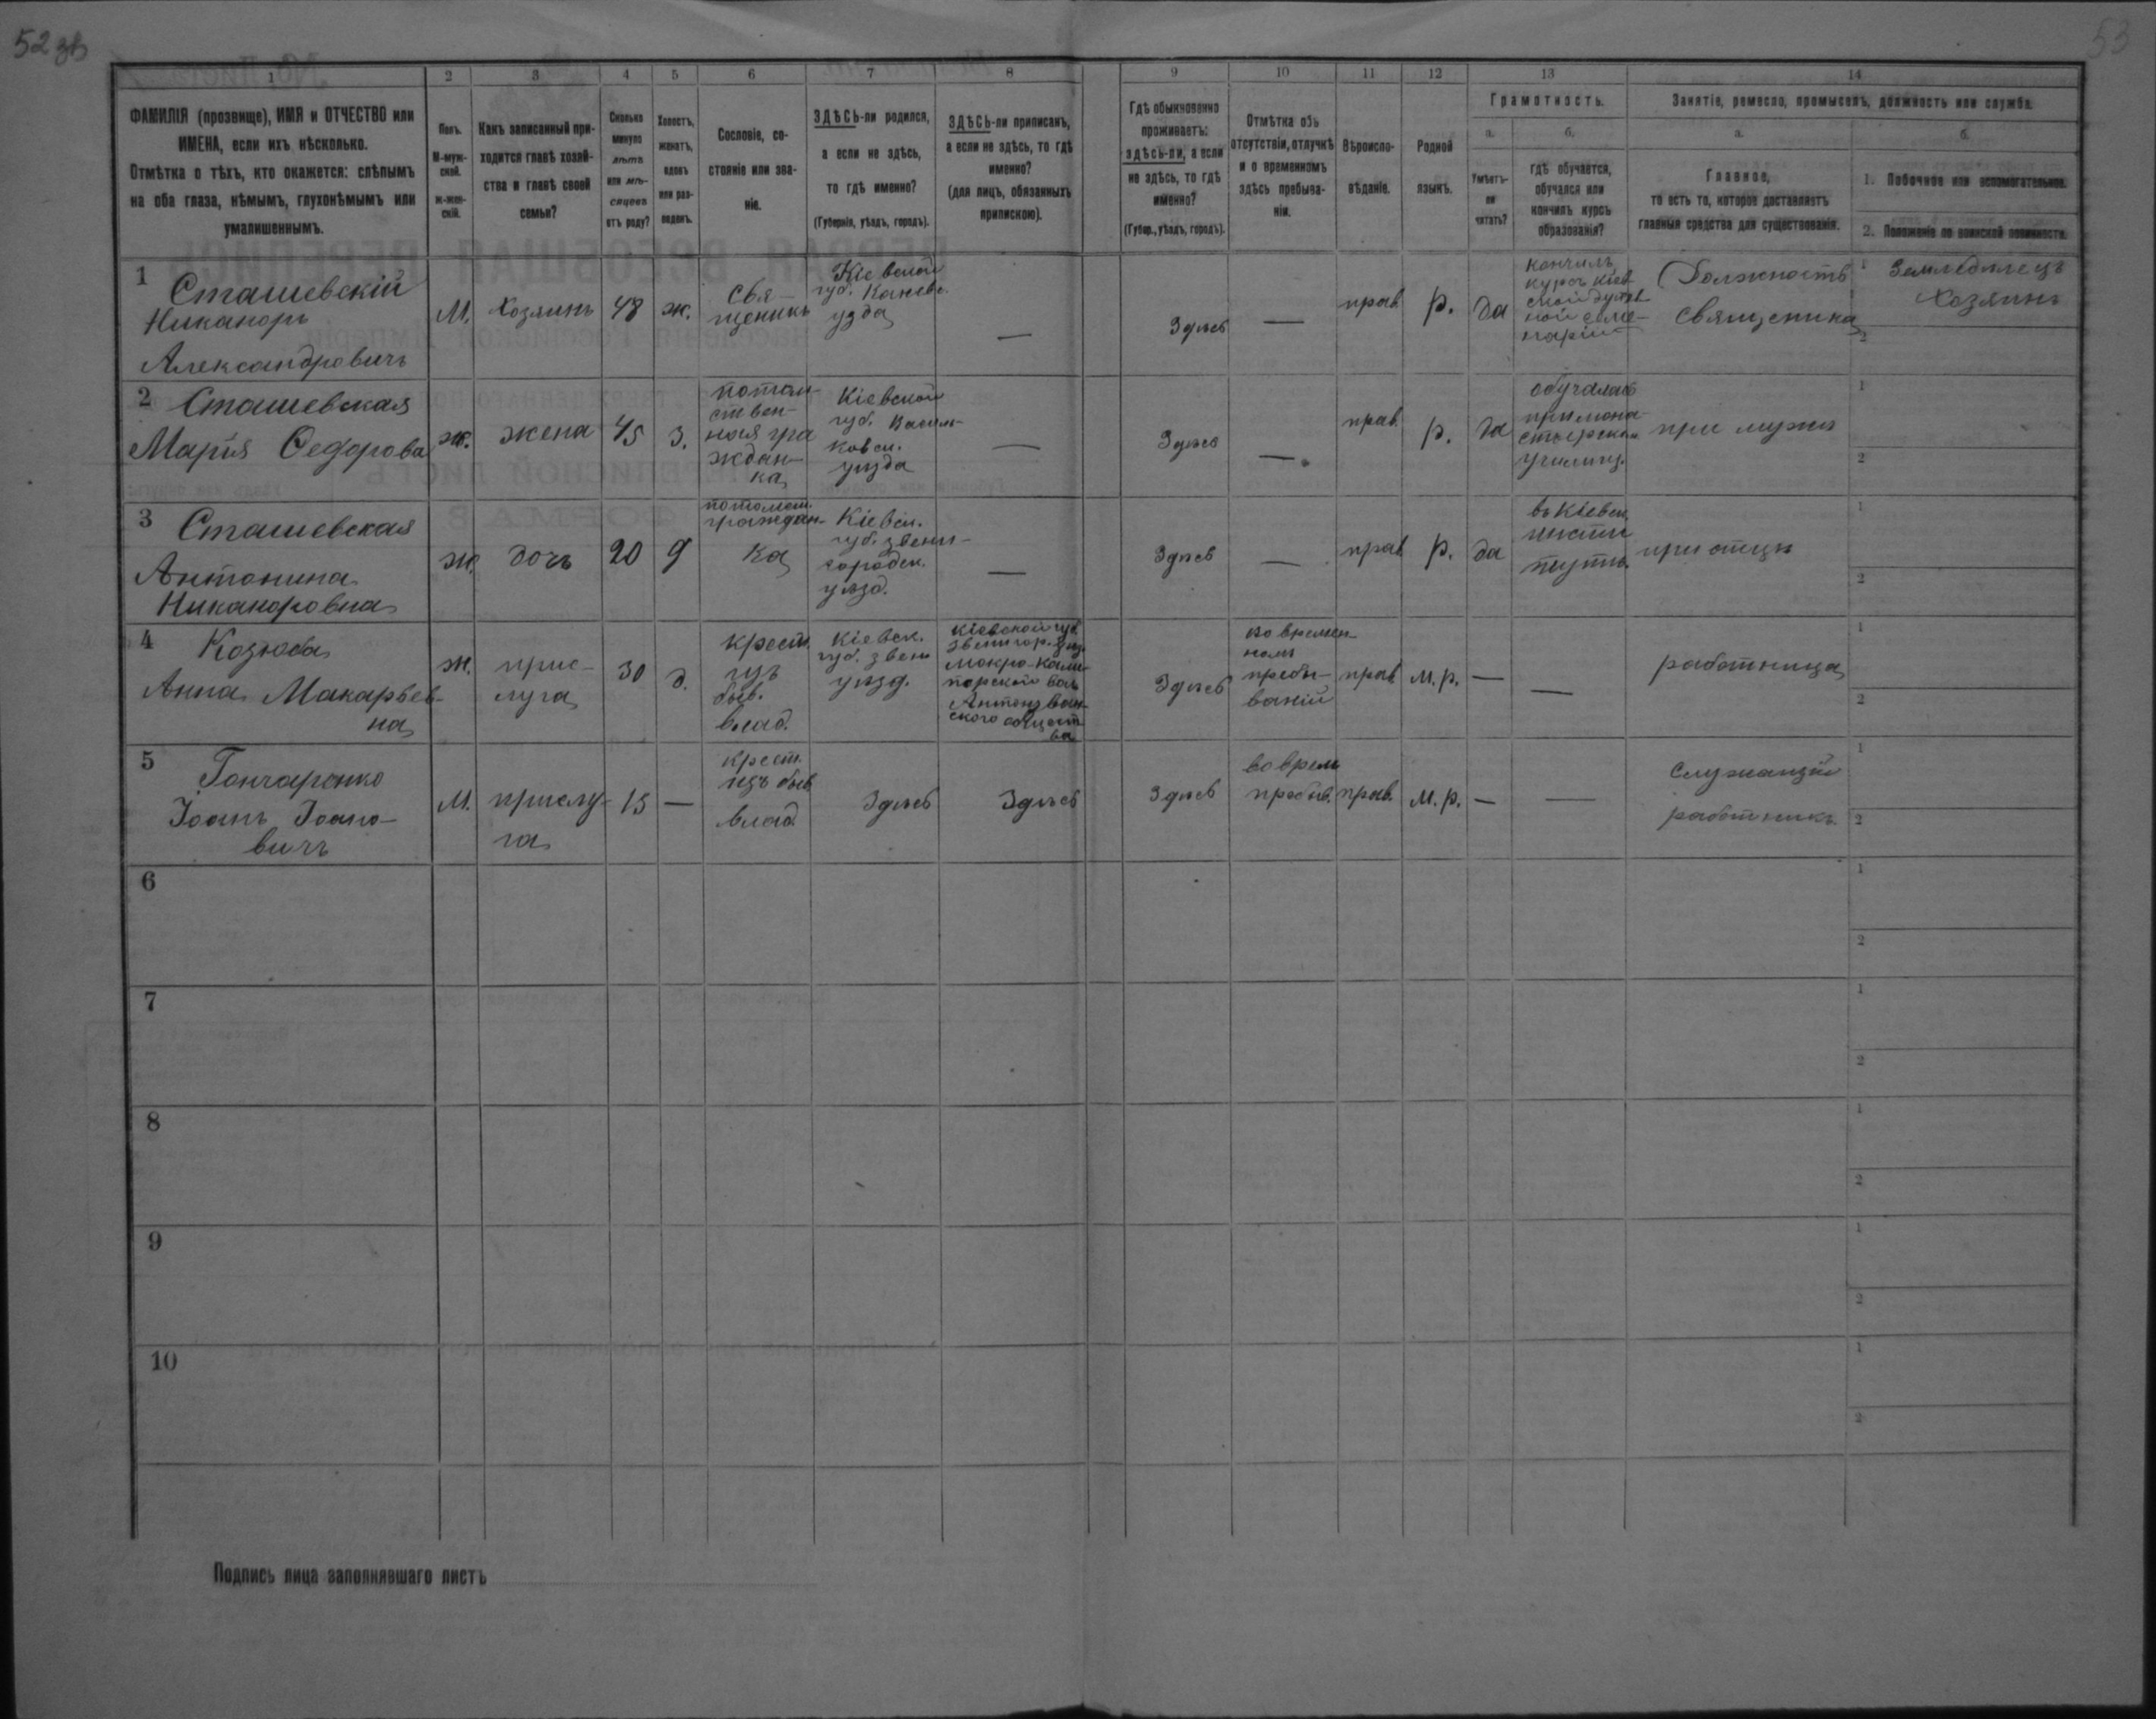 52 зв
53
1 2 3 4 5 6 7 8 9 10 11 12 13 14
ФАМИЛІЯ (прозвище), ИМЯ и ОТЧЕСТВО или
ИМЕНА, если ихъ нѣсколько.
Отмѣтка о тѣхъ, кто окажется: слѣпымъ
на оба глаза, нѣмымъ, глухонѣмымъ или
умалишеннымъ.
Полъ.
М-муж-
ской.
ж-жен-
скій.
Какъ записанный при-
ходится главѣ хозяй-
ства и главѣ своей
семьи?
Сколько
минуло
лѣтъ
или мѣ-
сяцевъ
отъ роду?
Холостъ,
женатъ,
вдовъ
или раз-
веденъ.
Сословіе, со-
стояніе или зва-
ніе.
ЗДѢСЬ-ли родился,
а если не здѣсь,
то гдѣ именно?
(Губернія, уѣздъ, городъ).
ЗДѢСЬ-ли приписанъ,
а если не здѣсь, то гдѣ
именно?
(для лицъ, обязанныхъ
припискою).
Гдѣ обыкновенно
проживаетъ:
здѣсь-ли, а если
не здѣсь, то гдѣ
именно?
(Губер., уѣздъ, городъ).
Отмѣтка объ
отсутствіи, отлучкѣ
и о временномъ
здѣсь пребыва-
ніи.
Вѣроиспо-
вѣданіе.
Родной
языкъ.
Грамотность.
а.
Умѣетъ-
ли
читать?
б.
гдѣ обучается,
обучался или
кончилъ курсъ
образованія?
Занятіе, ремесло, промыселъ, должность или служба.
а.
Главное,
то есть то, которое доставляетъ
главныя средства для существованія.
б.
1. Побочное или вспомогательное.
2. Положеніе по воинской повинности.
1
Сташевскій
Никаноръ
Александровичъ
М.
Хозяинъ
48
ж.
Свя-
щеникъ
Кіевской
губ. Каневс.
узда
—
Здѣсь
—
прав
р.
да
кончилъ
курсъ Кіев
ской духов
ной семе-
наріи
Должность
Священика
1 Земледѣлецъ
Хозяинъ
2
2
Сташевская
Марія Ѳедорова
ж.
жена
45
з.
потом-
ствен-
ная гра
ждан-
ка
Кіевской
губ. Василь-
ковск.
уѣзда
—
Здѣсь
—
прав.
р.
да
обучалась
при мона-
стырском
училищ.
при мужѣ
1
2
3
Сташевская
Антонина
Никаноровна
ж.
дочь
20
д
потомст.
граждан-
ка
Кіевск.
губ. звени-
городск.
уѣзд.
—
Здѣсь
—
прав
р.
да
въ Кіевск.
инсти
тутѣ.
при отцѣ
1
2
4
Козюба
Анна Макарьев-
на
ж.
прис-
луга
30
д.
крест.
изъ
быв.
влад.
Кіевск.
губ. звен
уѣзд.
Кіевской губ.
звенигор. уѣз.
Мокро-Кали-
горской вол
ского общест
ва
Здѣсь
во времен-
номъ
пребы-
ваніи
прав
м. р.
—
—
работница
1
2
5
Гончаренко
Іоанъ Іоано-
вичъ
М.
прислу-
га
15
—
крест.
изъ быв
влад.
Здѣсь
Здѣсь
Здѣсь
во врем
пребыв.
прав.
м. р.
—
—
Служащій
работникъ
1
2
6
1
2
7
1
2
8
1
2
9
1
2
10
1
2
Подпись лица заполнявшаго листъ